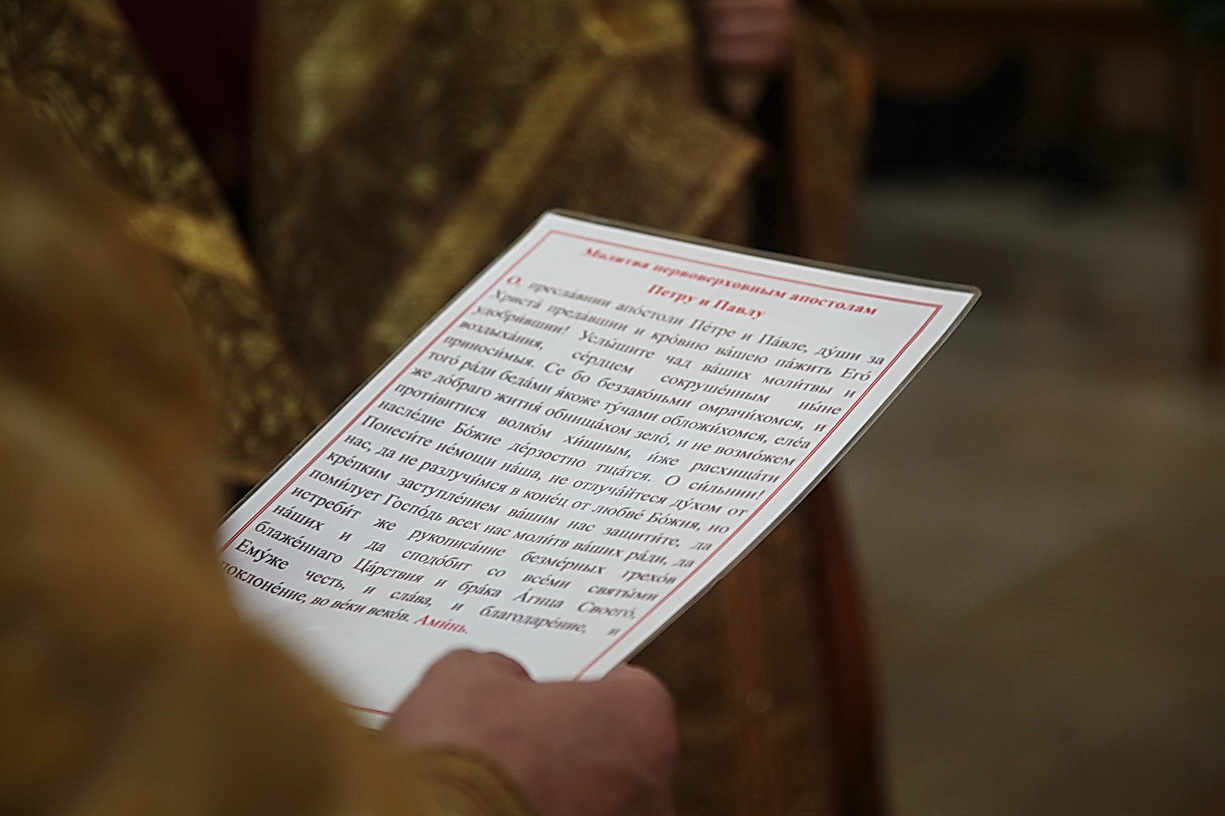 Молитва первоверховным апостолам
Петру и Павлу
О, пресла́внии апо́столи Пе́тре и Па́вле, ду́ши за
Христа́ преда́вшии и кро́вию ва́шею па́жить Его́
удобри́вшии! Услы́шите чад ва́ших моли́твы и
воздыха́ния, се́рдцем сокруше́нным ны́не
приноси́мыя. Се бо беззако́ньми омрачи́хомся, и
того́ ра́ди беда́ми я́коже ту́чами обложи́хомся, еле́а
же до́браго жития́ обнища́хом зело́, и не возмо́жем
проти́витися волко́м хи́щным, и́же расхища́ти
насле́дие Бо́жие де́рзостно тща́тся. О си́льнии!
Понеси́те не́мощи на́ша, не отлуча́йтеся ду́хом от
нас, да не разлучи́мся в коне́ц от любве́ Бо́жия, но
кре́пким заступле́нием ва́шим нас защити́те, да
поми́лует Госпо́дь всех нас моли́тв ва́ших ра́ди, да
истреби́т же рукописа́ние безме́рных грехо́в
на́ших и да сподо́бит со все́ми святы́ми
блаже́ннаго Ца́рствия и бра́ка А́гнца Своего́,
Ему́же честь, и сла́ва, и благодаре́ние, и
поклоне́ние, во ве́ки веко́в. Ами́нь.